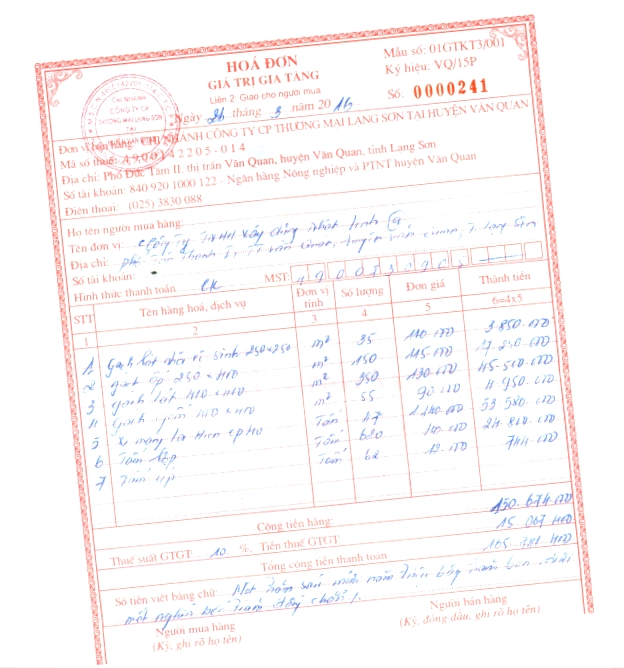 HOÁ ĐƠN
GIÁ TRỊ GIA TĂNG
Liên 2: Giao cho người mua
Ngày 26 tháng 3 năm 2016
Mẫu số: 01GTKT3/001
Ký hiệu: VQ/15P
Số: 0000241
CHI NHÁNH
CÔNG TY CP
THƯƠNG MẠI LẠNG SƠN
TẠI
Đơn vị bán hàng: CHI NHÁNH CÔNG TY CP THƯƠNG MẠI LẠNG SƠN TẠI HUYỆN VĂN QUAN
Mã số thuế: 4900142205-014
Địa chỉ: Phố Đức Tâm II, thị trấn Văn Quan, huyện Văn Quan, tỉnh Lạng Sơn
Số tài khoản: 840 920 1000 122 - Ngân hàng Nông nghiệp và PTNT huyện Văn Quan
Điện thoại: (025) 3830 088
Họ tên người mua hàng:
Tên đơn vị: Công ty TNHH xây dựng
Địa chỉ: Văn Quan, huyện Văn Quan, T. Lạng Sơn
Số tài khoản:
Hình thức thanh toán CK MST:
STT Tên hàng hoá, dịch vụ Đơn vị tính Số lượng Đơn giá Thành tiền
1 2 3 4 5 6=4x5
1 Gạch 250x250 m² 35 110.000 3.850.000
2 Gạch ốp 250x400 m² 150 115.000 17.250.000
3 Gạch lát 400x400 m² 350 130.000 45.500.000
4 Gạch 400x400 m² 55 90.000 4.950.000
5 Xi măng Tấn 47 1.140.000 53.580.000
6 Tấm lợp Tấm 620 40.000 24.800.000
7 Tấm Tấm 62 12.000 744.000
Cộng tiền hàng: 150.674.000
Thuế suất GTGT 10 %, Tiền thuế GTGT 15.067.400
Tổng cộng tiền thanh toán 165.741.400
Số tiền viết bằng chữ: Một trăm sáu mươi năm triệu bảy trăm bốn mươi
một nghìn bốn trăm đồng chẵn /.
Người mua hàng
(Ký, ghi rõ họ tên)
Người bán hàng
(Ký, đóng dấu, ghi rõ họ tên)